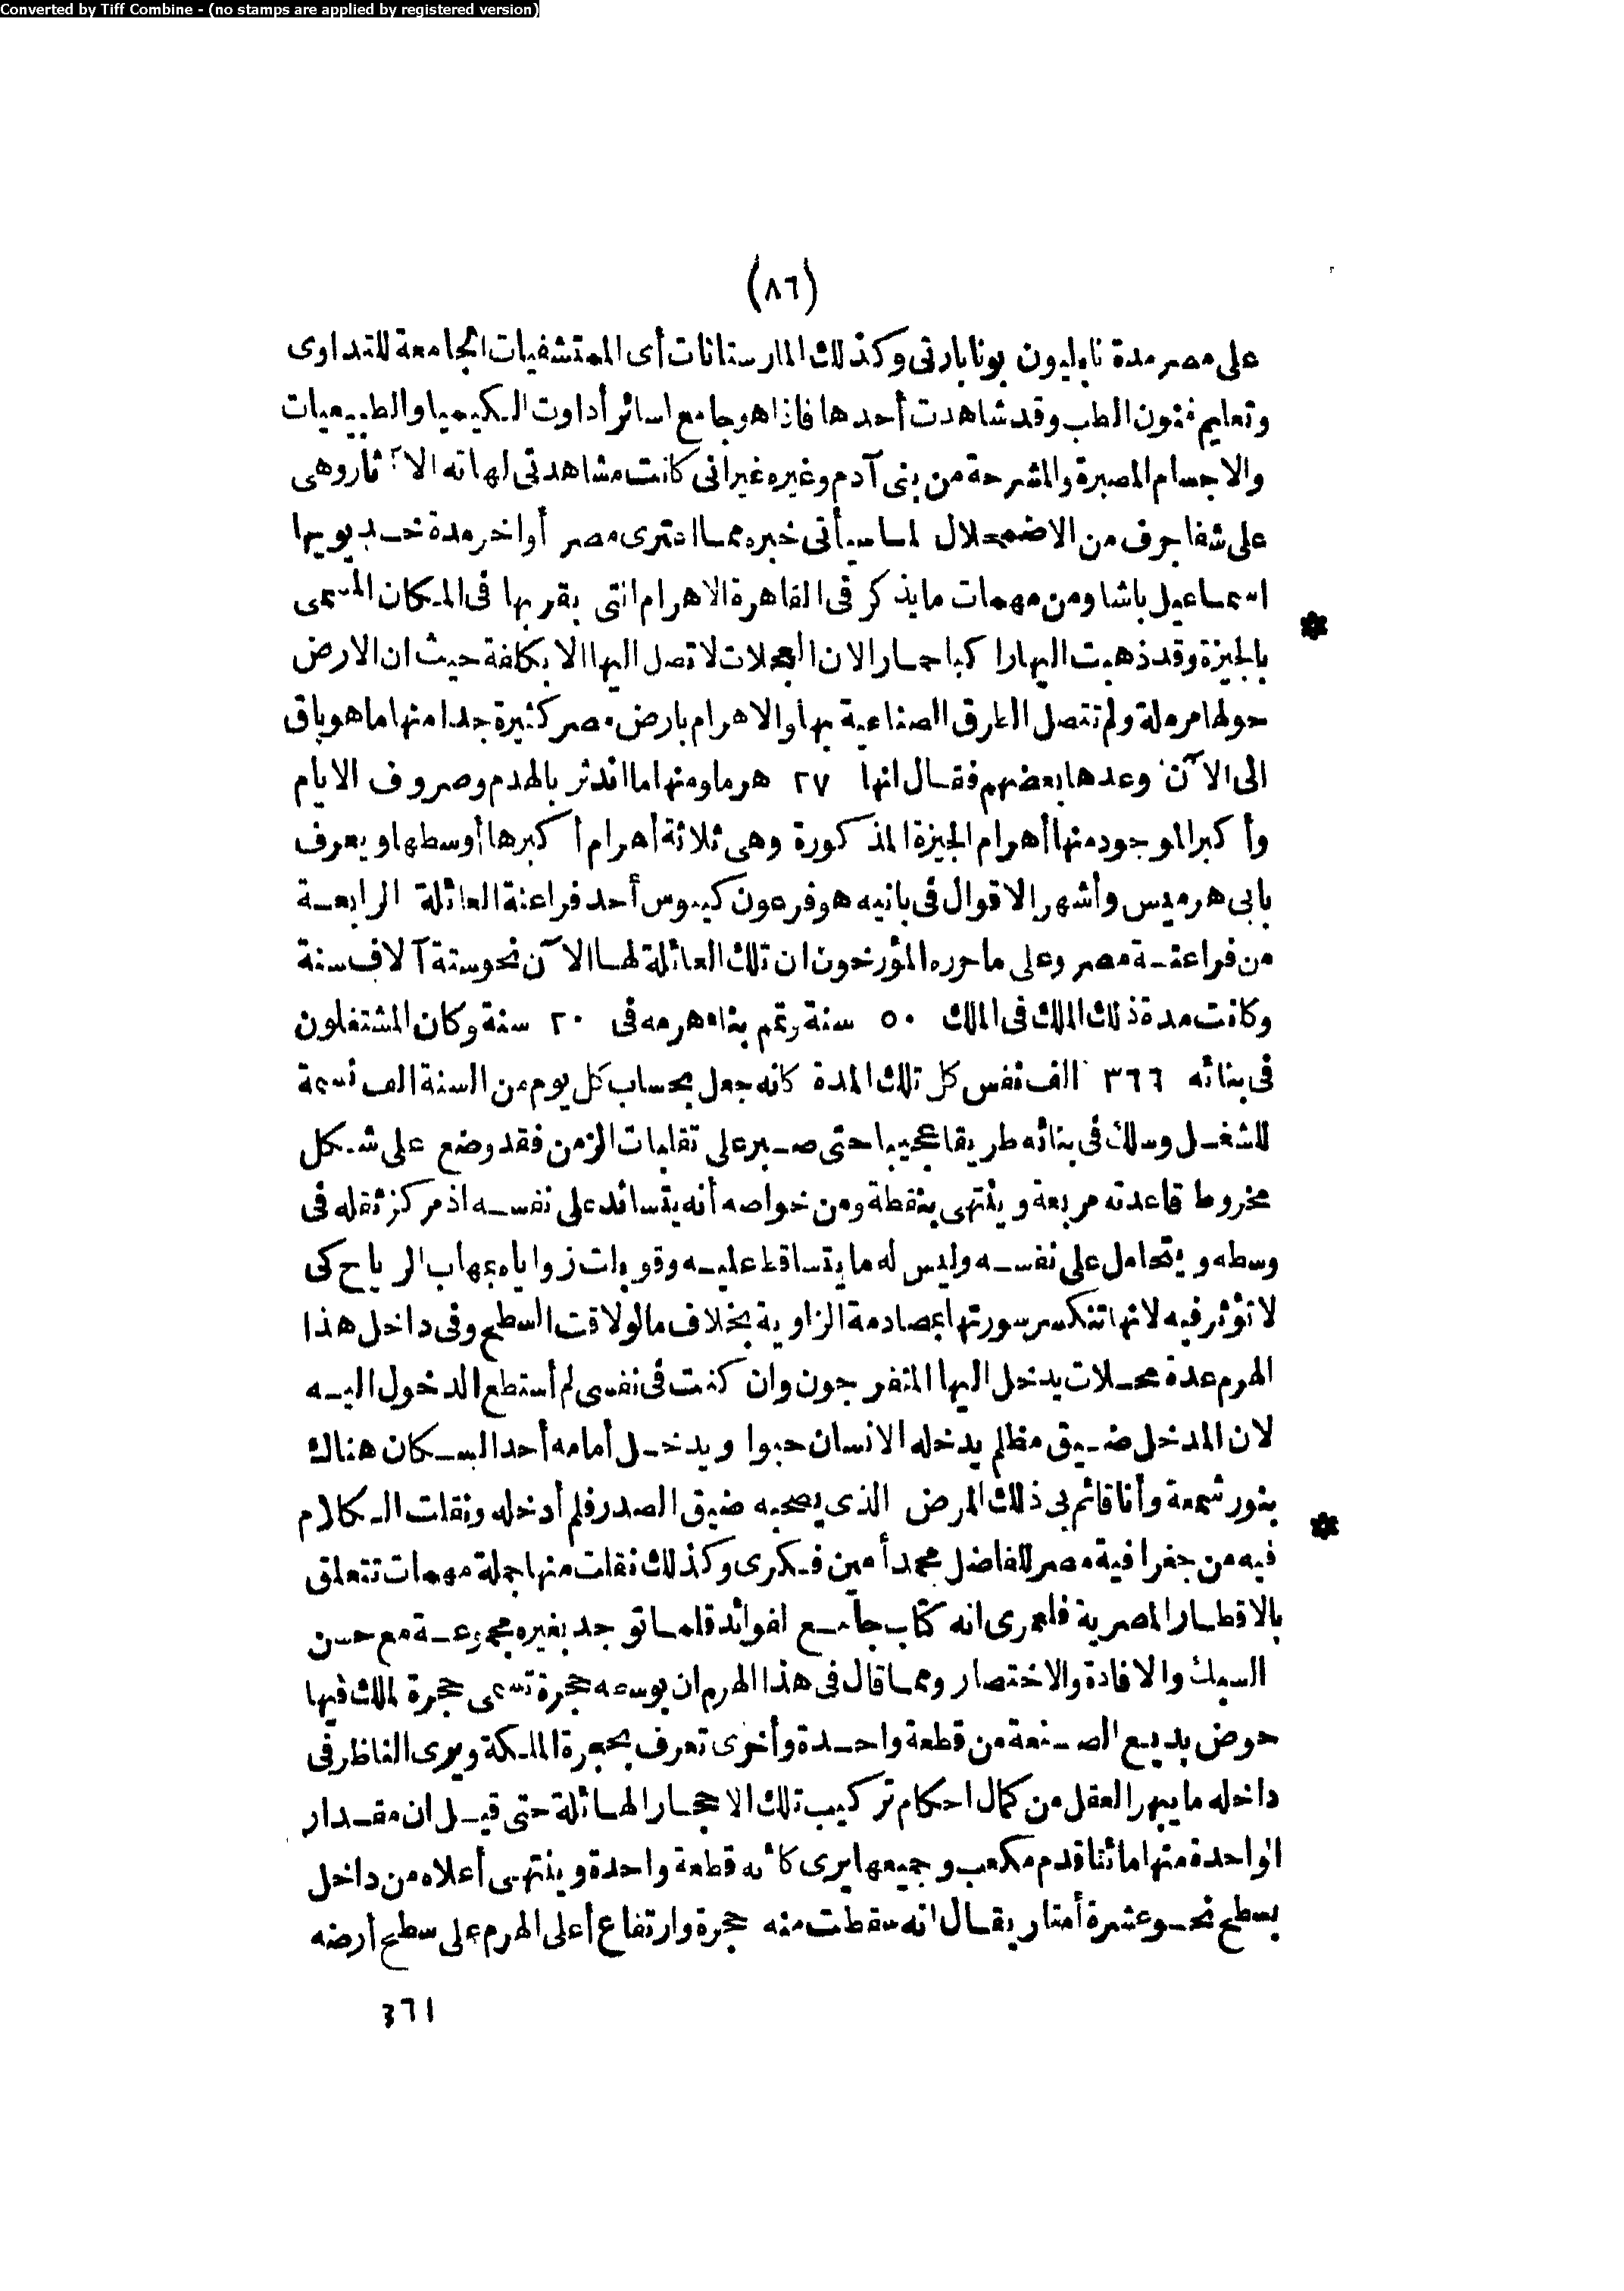 Converted by Tiff Combine - (no stamps are applied by registered version)
(٨٦)
على مصر مدة نابليون بونابارتى وكذلك المارستانات أى المستشفيات الجامعة للتداوى
وتعاليم فنون الطب وقد شاهدت أحدها فاذا هو جامع لسائر أداوت الكيميا والطبيعيات
والاجسام المصبرة والمشرحة من بنى آدم وغيره غير انى كانت مشاهدتى لهاته الآثار وهى
على شفا جرف من الاضمحلال لما سيأتى خبره مما اعترى مصر أواخر مدة خديويها
اسماعيل باشا ومن مهمات ما يذكر فى القاهرة الاهرام التى بقربها فى المكان المسمى
بالجيزة وقد ذهبت اليها را كبا حمارا لان العجلات لا تصل اليها الا بكلفة حيث ان الارض
حولها مرملة ولم تتصل الطرق الصناعية بها والاهرام بارض مصر كثيرة جدا منها ما هو باق
الى الآن وعدها بعضهم فقال انها ٢٧ هرما ومنها ما اندثر بالهدم وصروف الايام
وأكبر الموجود منها أهرام الجيزة المذكورة وهى ثلاثة أهرام أكبرها أوسطها ويعرف
بابى هرميس وأشهر الاقوال فى بانيه هو فرعون كيبوس أحد فراعنة العائلة الرابعة
من فراعنة مصر وعلى ما حرره المؤرخون ان تلك العائلة لها الآن نحو ستة آلاف سنة
وكانت مدة ذلك الملك فى الملك ٥٠ سنة وتم بناء هرمه فى ٢٠ سنة وكان المشتغلون
فى بنائه ٣٦٦ الف نفس كل تلك المدة كانه جعل بحساب كل يوم من السنة الف نسمة
للشغل وسلك فى بنائه طريقا عجيبا حتى صبر على تقلبات الزمن فقد وضع على شكل
مخروط قاعدته مربعة وينتهى بنقطة ومن خواصه أنه يتساند على نفسه اذ مركز ثقله فى
وسطه ويتحامل على نفسه وليس له ما يتساقط عليه وقوبلت زواياه بمهاب الرياح كى
لا تؤثر فيه لانها تنكسر سورتها بمصادمة الزاوية بخلاف ما لو لاقت السطح وفى داخل هذا
الهرم عدة محلات يدخل اليها المتفرجون وان كنت فى نفسى لم أستطع الدخول اليه
لان المدخل ضيق مظلم يدخله الانسان حبوا ويدخل أمامه أحد السكان هناك
بنور شمعة وأنا قائم بى ذلك المرض الذى يصحبه ضيق الصدر فلم أدخله ونقلت الكلام
فيه من جغرافية مصر للفاضل محمد أمين فكرى وكذلك نقلت منها جملة مهمات تتعلق
بالاقطار المصرية فلعمرى انه كتاب جامع لفوائد قلما توجد بغيره مجموعة مع حسن
السبك والافادة والاختصار ومما قال فى هذا الهرم ان بوسعه حجرة تسمى حجرة الملك فيها
حوض بديع الصنعة من قطعة واحدة وأخرى تعرف بحجرة الملكة ويرى الناظر فى
داخله ما يبهر العقل من كمال احكام تركيب تلك الاحجار الهائلة حتى قيل ان مقدار
الواحدة منها مائتا قدم مكعب وجميعها يرى كأنه قطعة واحدة وينتهى أعلاه من داخل
بسطح نحو عشرة أمتار يقال انه سقطت منه حجرة وارتفاع أعلى الهرم على سطح أرضه
٣٦١